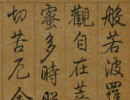 般若波羅
觀自在菩
蜜多時照
切苦厄舍